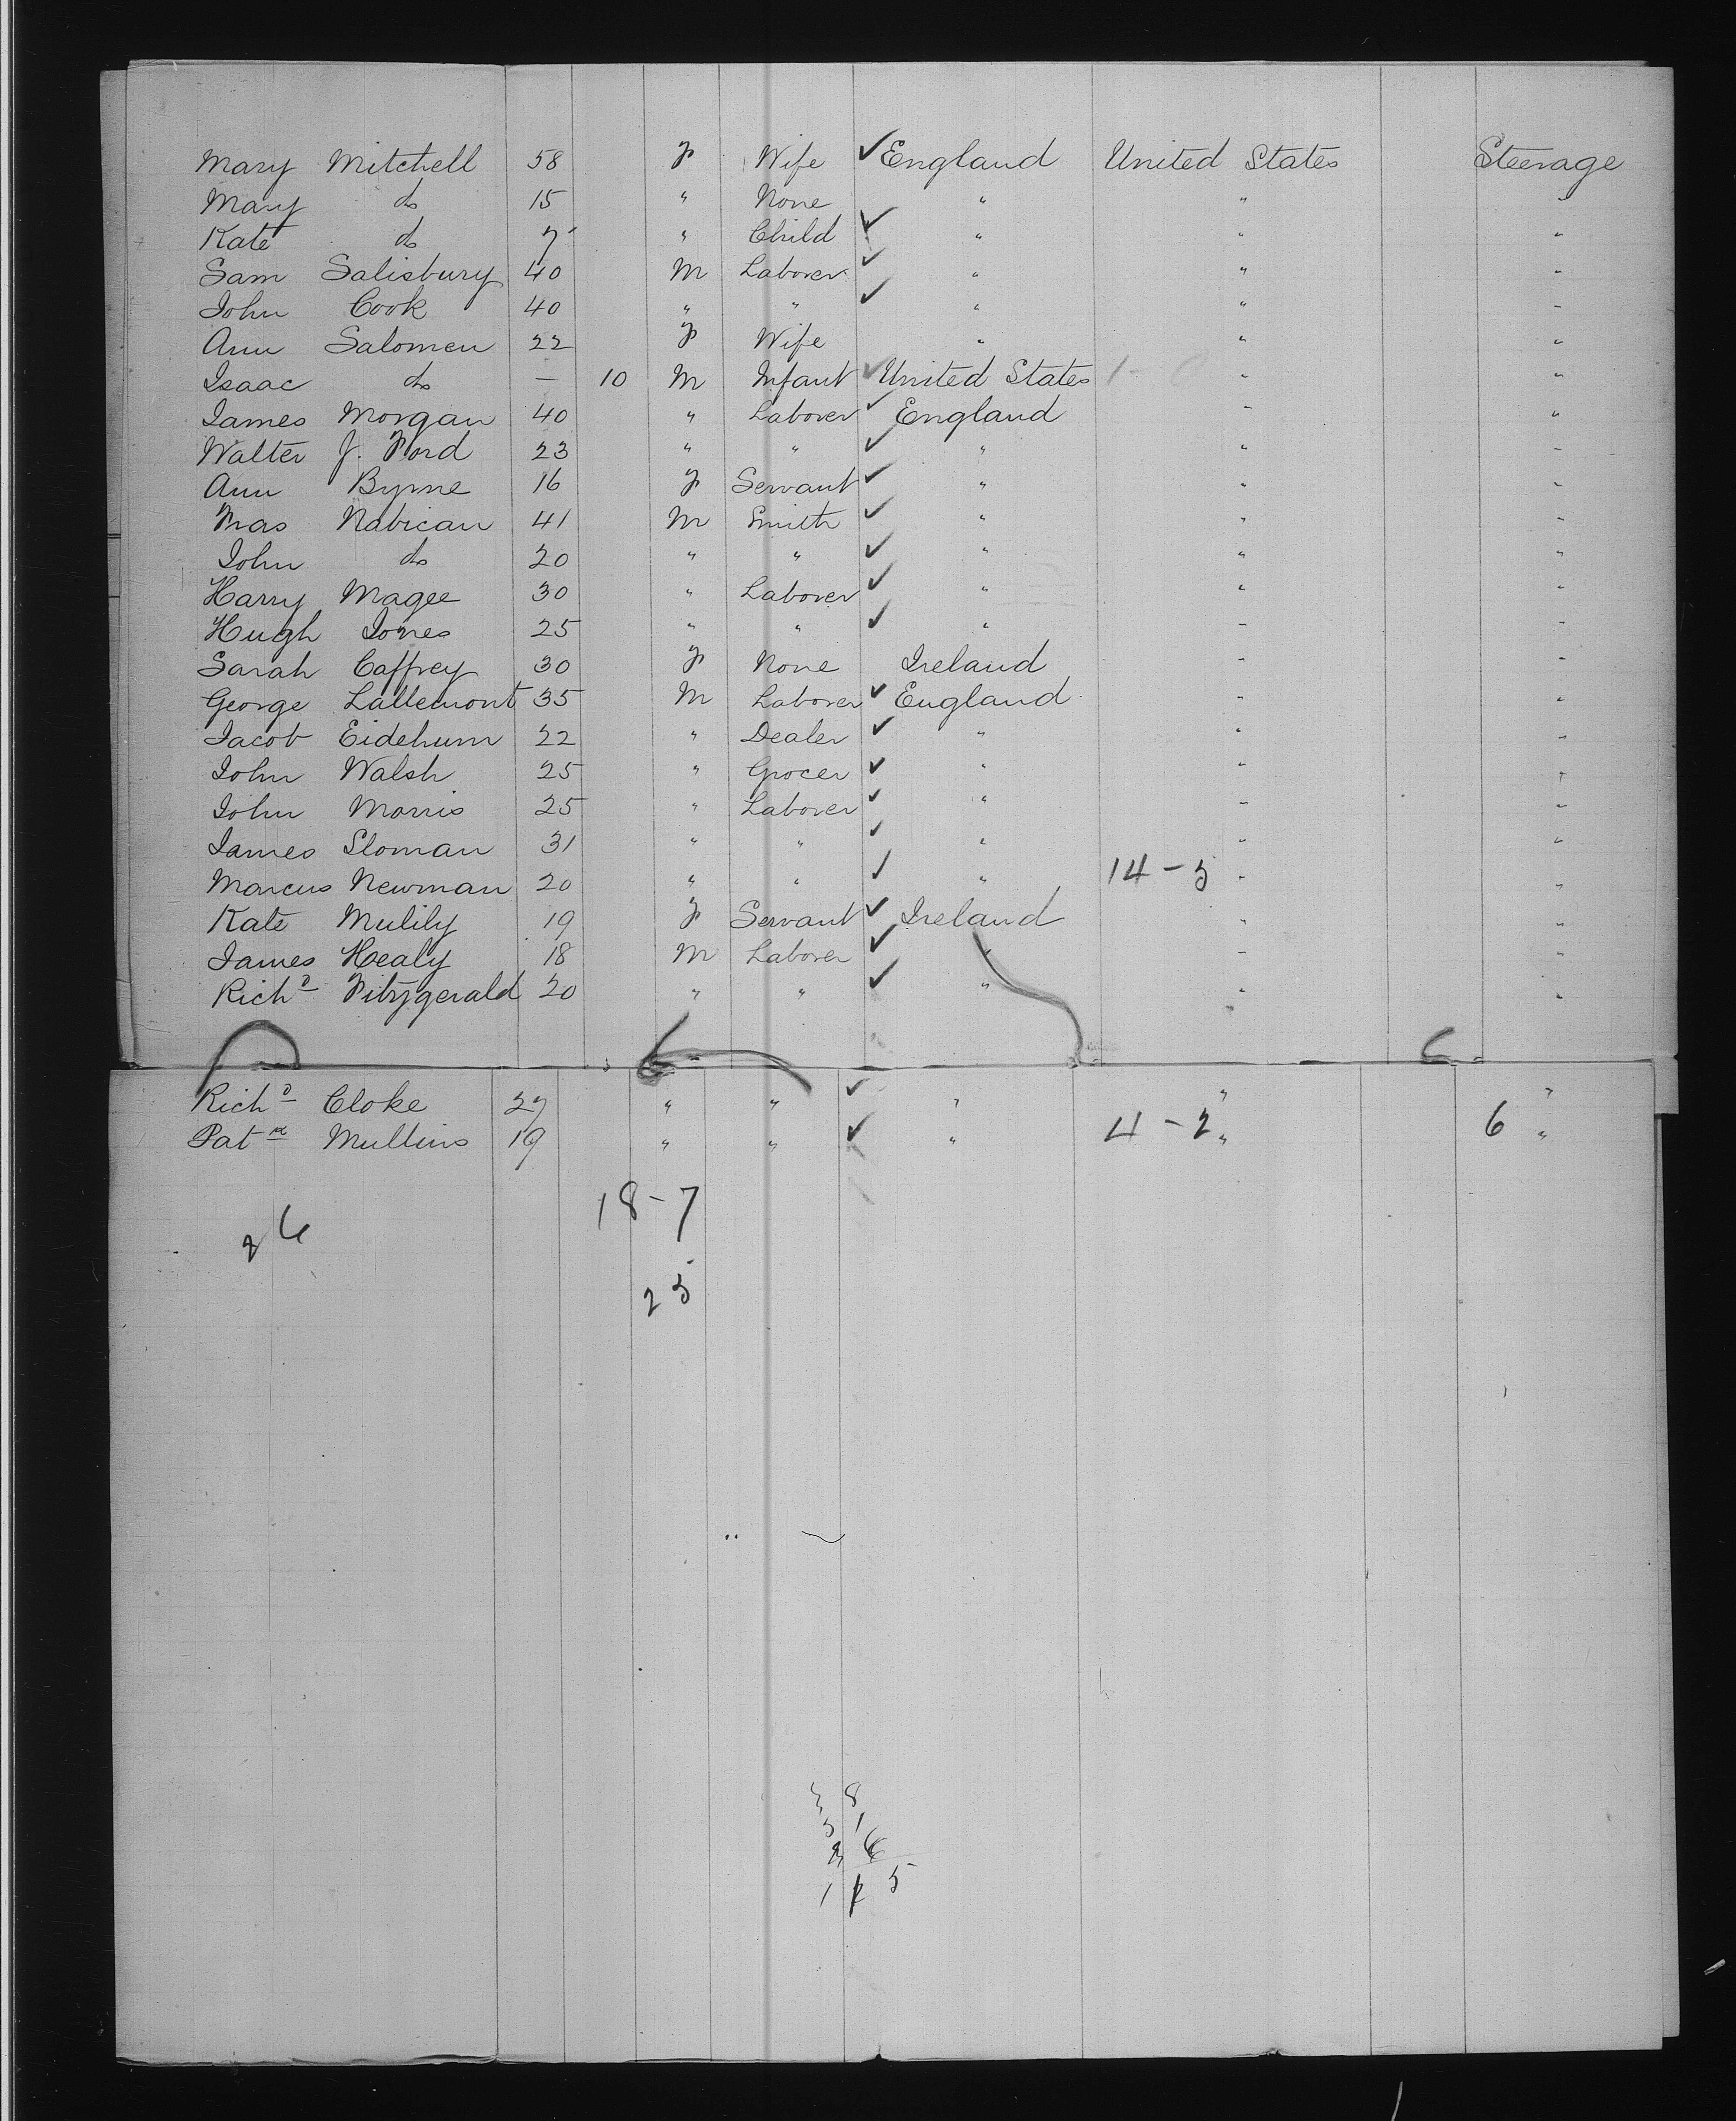 Mary Mitchell 58 F Wife ✓ England United States Steerage
Mary do 15 " None " " "
Kate do 7 " Child ✓ " " "
Sam Salisbury 40 M Laborer ✓ " " "
John Cook 40 " " ✓ " " "
Ann Salomen 22 F Wife " " "
Isaac do — 10 M Infant ✓ United States 1 - 0 " "
James Morgan 40 " Laborer ✓ England " "
Walter J. Ford 23 " " ✓ " " "
Ann Byrne 16 F Servant ✓ " " "
Fras Nabican 41 M Smith ✓ " " "
John do 20 " " ✓ " " "
Harry Magee 30 " Laborer ✓ " " "
Hugh Jones 25 " " ✓ " " "
Sarah Caffrey 30 F None Ireland " "
George Lallemont 35 M Laborer ✓ England " "
Jacob Eidehum 22 " Dealer ✓ " " "
John Walsh 25 " Grocer ✓ " " "
John Morris 25 " Laborer ✓ " " "
James Sloman 31 " " ✓ " " "
Marcus Newman 20 " " ✓ " 14 - 5 " "
Kate Mulily 19 F Servant ✓ Ireland " "
James Healy 18 M Laborer ✓ " " "
Richd Fitzgerald 20 " " ✓ " " "
Richd Cloke 27 " " ✓ " " "
Patk Mullins 19 " " ✓ " 4 - 2 " 6 "
18 - 7
26
25
38
51
26
115